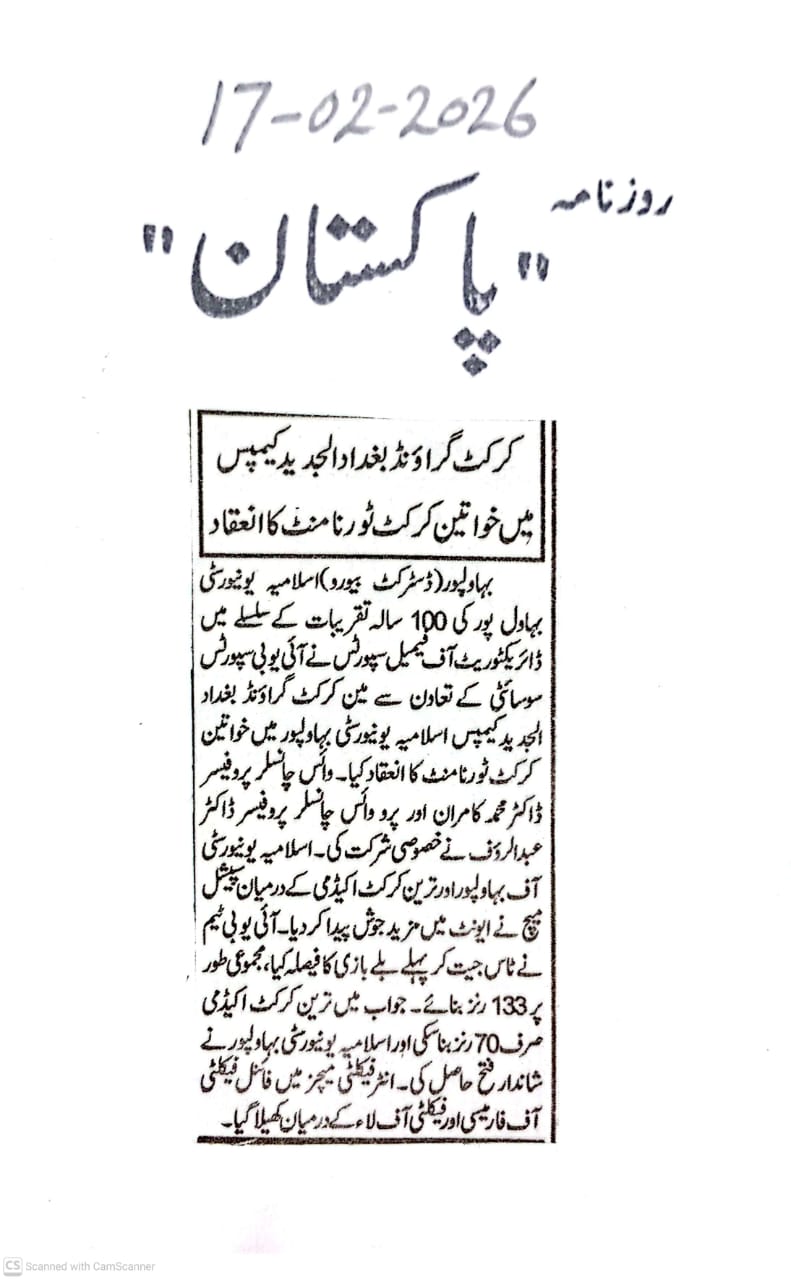 17-02-2026
روزنامہ
"پاکستان"
کرکٹ گراؤنڈ بغداد الجدید کیمپس
میں خواتین کرکٹ ٹورنامنٹ کا انعقاد
بہاولپور (ڈسٹرکٹ بیورو) اسلامیہ یونیورسٹی
بہاول پور کی 100 سالہ تقریبات کے سلسلے میں
ڈائریکٹوریٹ آف فیمیل سپورٹس نے آئی یو بی سپورٹس
سوسائٹی کے تعاون سے مین کرکٹ گراؤنڈ بغداد
الجدید کیمپس اسلامیہ یونیورسٹی بہاولپور میں خواتین
کرکٹ ٹورنامنٹ کا انعقاد کیا۔ وائس چانسلر پروفیسر
ڈاکٹر محمد کامران اور پرو وائس چانسلر پروفیسر ڈاکٹر
عبدالرؤف نے خصوصی شرکت کی۔ اسلامیہ یونیورسٹی
آف بہاولپور اور ترین کرکٹ اکیڈمی کے درمیان سپیشل
میچ نے ایونٹ میں مزید جوش پیدا کر دیا۔ آئی یو بی ٹیم
نے ٹاس جیت کر پہلے بلے بازی کا فیصلہ کیا، مجموعی طور
پر 133 رنز بنائے۔ جواب میں ترین کرکٹ اکیڈمی
صرف 70 رنز بنا سکی اور اسلامیہ یونیورسٹی بہاولپور نے
شاندار فتح حاصل کی۔ انٹر فیکلٹی میچز میں فائنل فیکلٹی
آف فارمیسی اور فیکلٹی آف لاء کے درمیان کھیلا گیا۔
CS Scanned with CamScanner